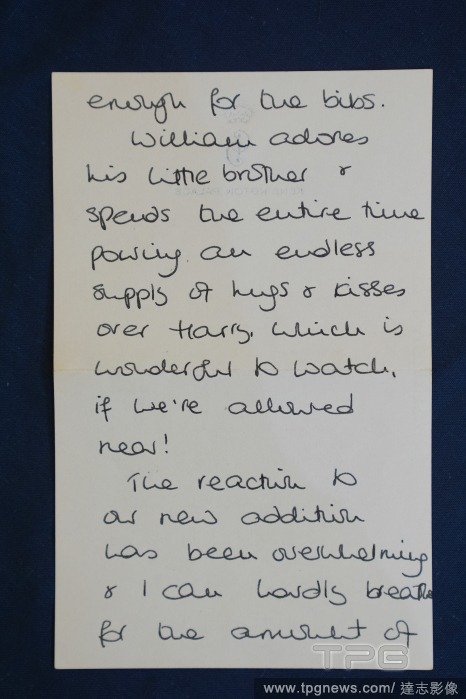 enough for the bibs.
William adores
his little brother &
spends the entire time
pouring an endless
supply of hugs & kisses
over Harry, which is
wonderful to watch,
if we're allowed
near!
The reaction to
our new addition
has been overwhelming
& I can hardly breathe
for the amount of
TPG
www.tpgnews.com/達志影像